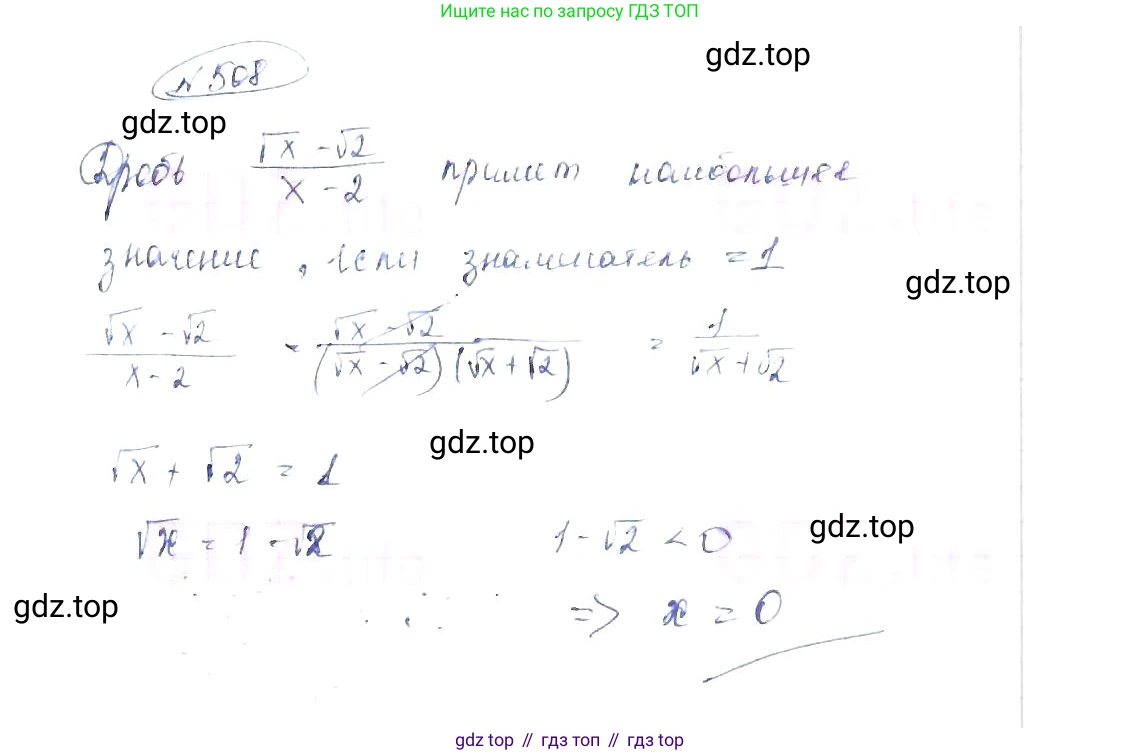 Ищите нас по запросу ГДЗ ТОП
gdz.top
№ 508
gdz.top
Дробь (√x - √2)/(x - 2) примет наибольшее
значение, если знаменатель = 1
gdz.top
(√x - √2)/(x - 2) = (√x - √2)/((√x - √2)(√x + √2)) = 1/(√x + √2)
gdz.top
√x + √2 = 1
gdz.top
√x = 1 - √2 1 - √2 < 0
gdz.top
=> x = 0
gdz.top
gdz.top // гдз топ // гдз.top